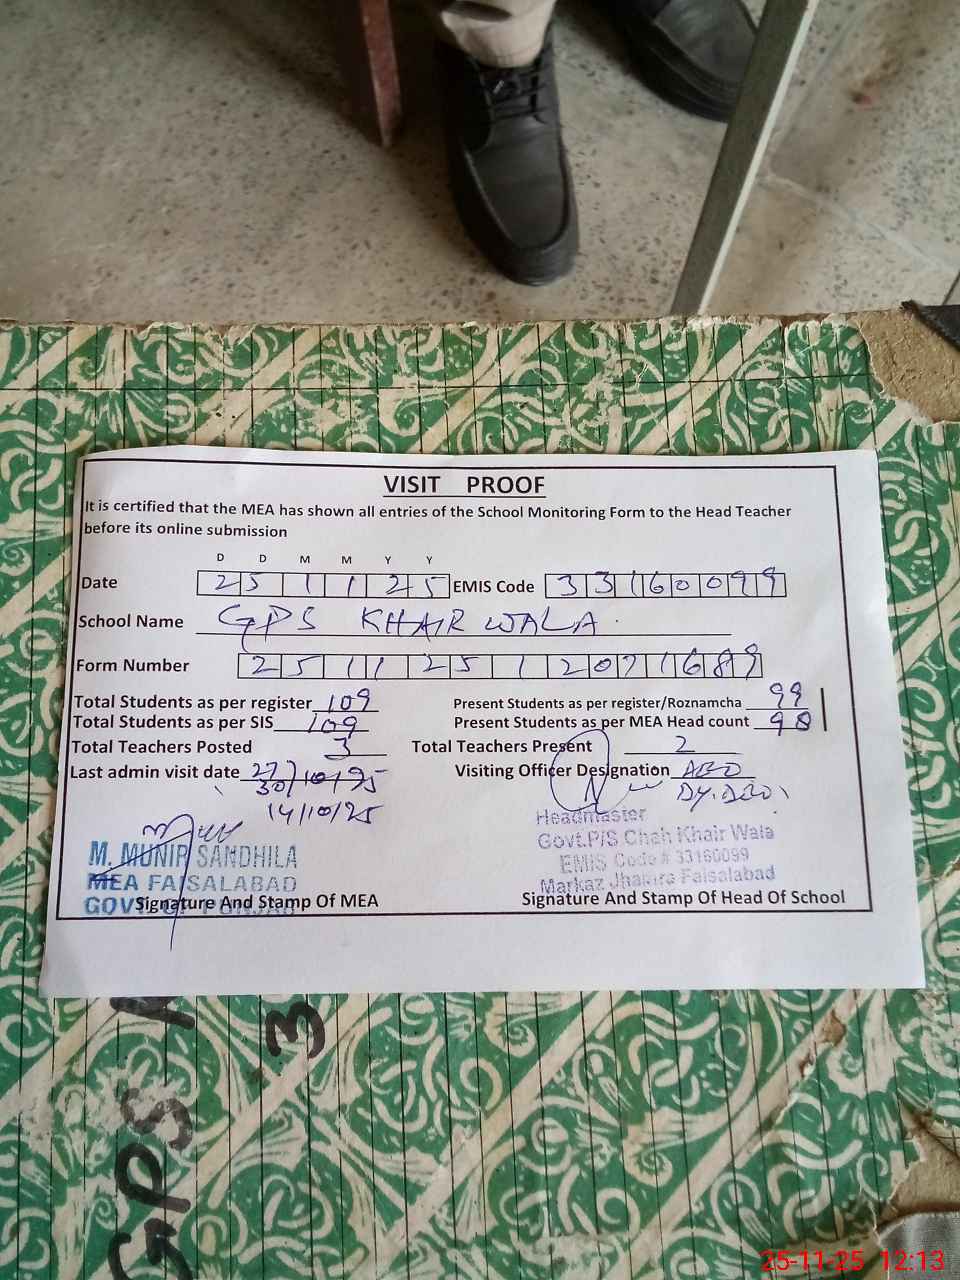 VISIT PROOF
It is certified that the MEA has shown all entries of the School Monitoring Form to the Head Teacher
before its online submission
D D M M Y Y
Date 25 11 25 EMIS Code 33160099
School Name GPS KHAIR WALA
Form Number 25 11 25 1 2071689
Total Students as per register 109 Present Students as per register/Roznamcha 99
Total Students as per SIS 109 Present Students as per MEA Head count 98
Total Teachers Posted 3 Total Teachers Present 2
Last admin visit date 27/10/25 Visiting Officer Designation AEO
30/ Dy.DEO
14/10/25
Headmaster
Govt.P/S Chah Khair Wala
EMIS Code # 33160099
Markaz Jhamra Faisalabad
M. MUNIR SANDHILA
MEA FAISALABAD
GOVT OF PUNJAB
Signature And Stamp Of MEA Signature And Stamp Of Head Of School
3
GPS
25-11-25 12:13